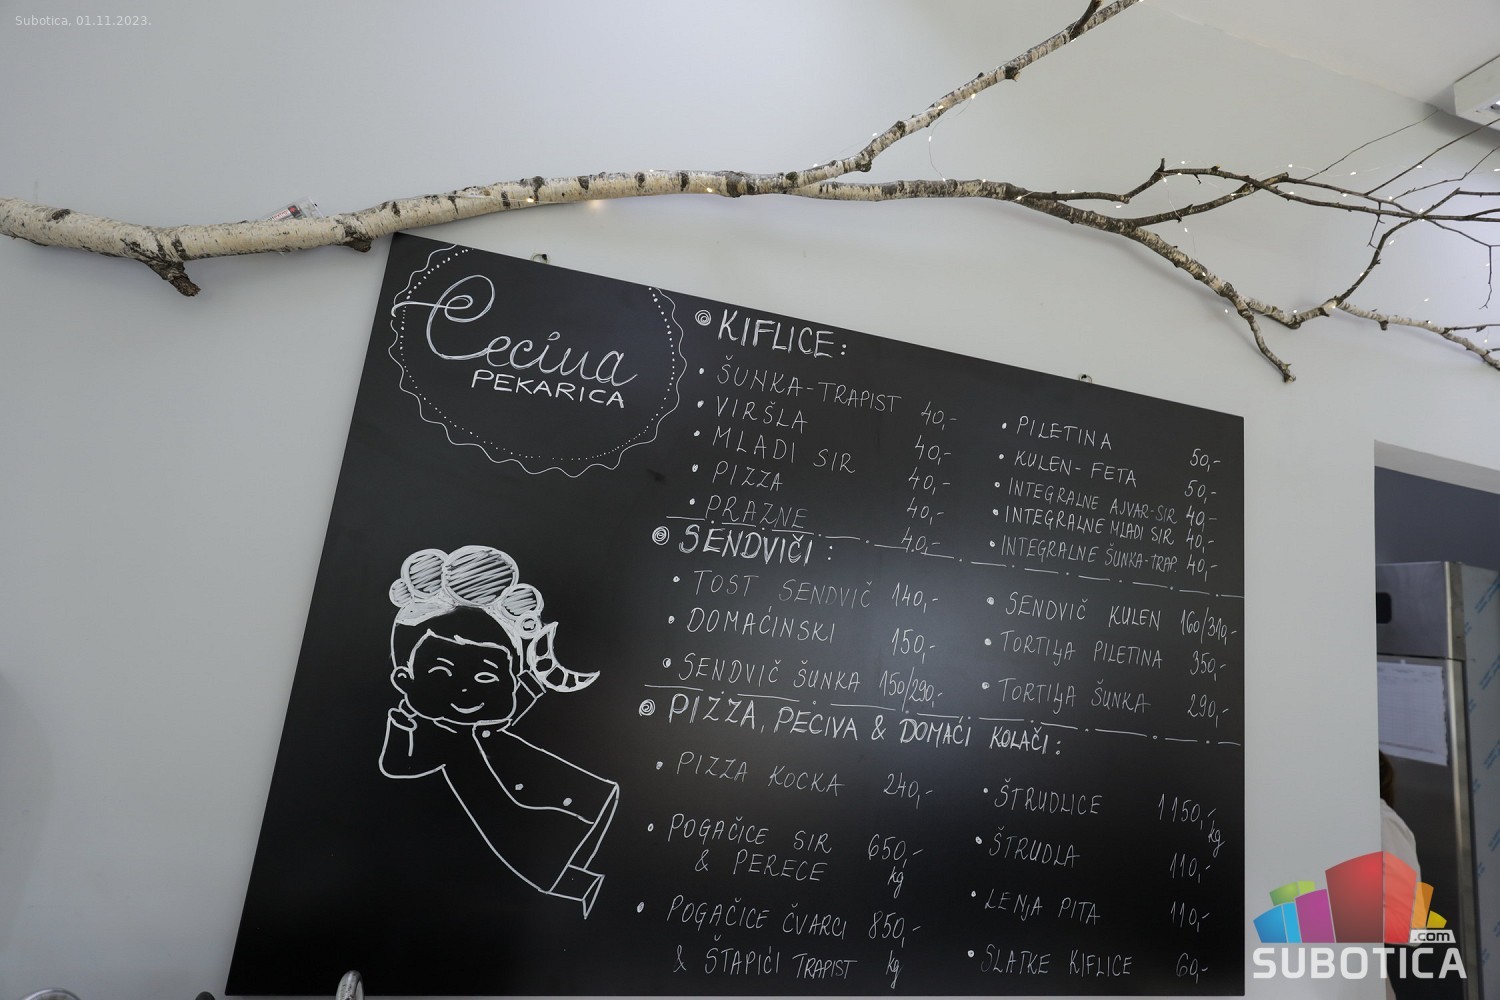 Subotica, 01.11.2023.
Cecina
PEKARICA
KIFLICE:
• ŠUNKA-TRAPIST 40,-
• VIRŠLA 40,-
• MLADI SIR 40,-
• PIZZA 40,-
• PRAZNE 40,-
• PILETINA 50,-
• KULEN-FETA 50,-
• INTEGRALNE AJVAR-SIR 40,-
• INTEGRALNE MLADI SIR 40,-
• INTEGRALNE ŠUNKA-TRAP. 40,-
SENDVIČI:
• TOST SENDVIČ 140,-
• DOMAĆINSKI 150,-
• SENDVIČ ŠUNKA 150/290,-
• SENDVIČ KULEN 160/310,-
• TORTILJA PILETINA 350,-
• TORTILJA ŠUNKA 290,-
PIZZA, PECIVA & DOMAĆI KOLAČI:
• PIZZA KOCKA 240,-
• POGAČICE SIR 650,-
& PERECE kg
• POGAČICE ČVARCI 850,-
& ŠTAPIĆI TRAPIST kg
• ŠTRUDLICE 1150,-
kg
• ŠTRUDLA 110,-
• LENJA PITA 110,-
• SLATKE KIFLICE 60,-
.com
SUBOTICA